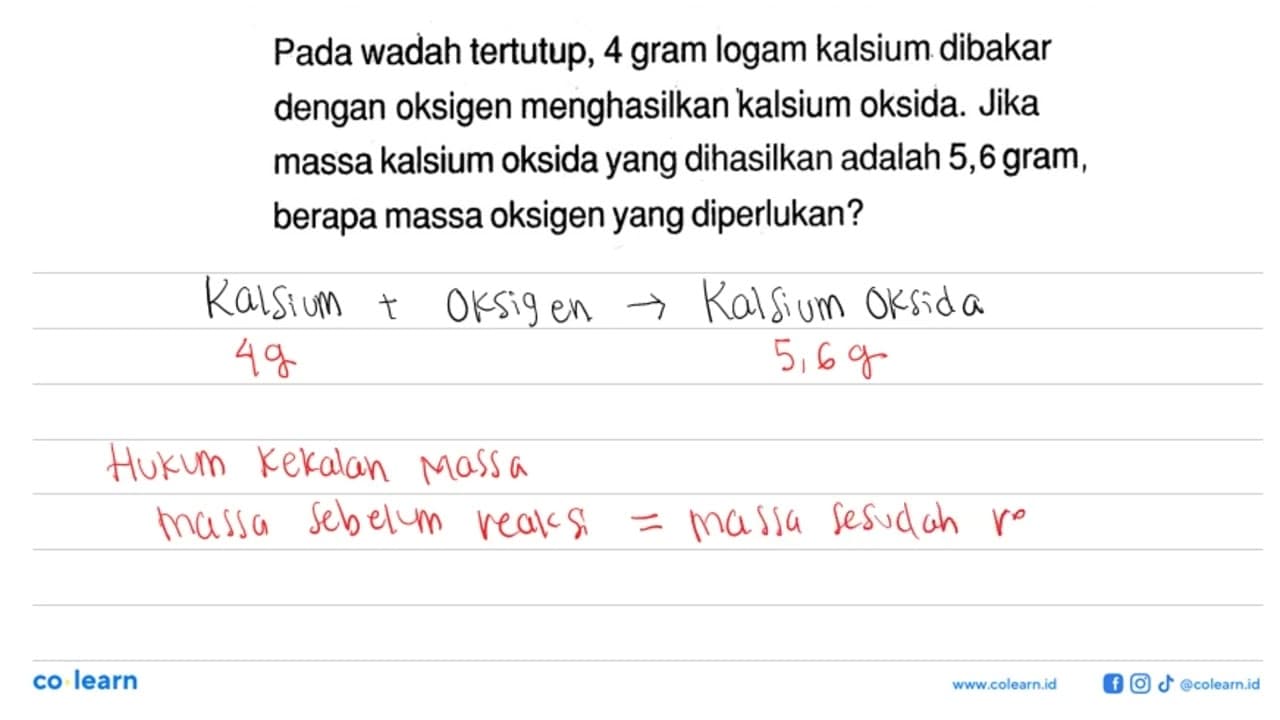 Pada wadah tertutup, 4 gram logam kalsium dibakar
dengan oksigen menghasilkan kalsium oksida. Jika
massa kalsium oksida yang dihasilkan adalah 5,6 gram,
berapa massa oksigen yang diperlukan?
Kalsium + Oksigen → Kalsium Oksida
4g 5,6 g
Hukum Kekalan Massa
massa sebelum reaksi = massa sesudah r
co learn
www.colearn.id @colearn.id